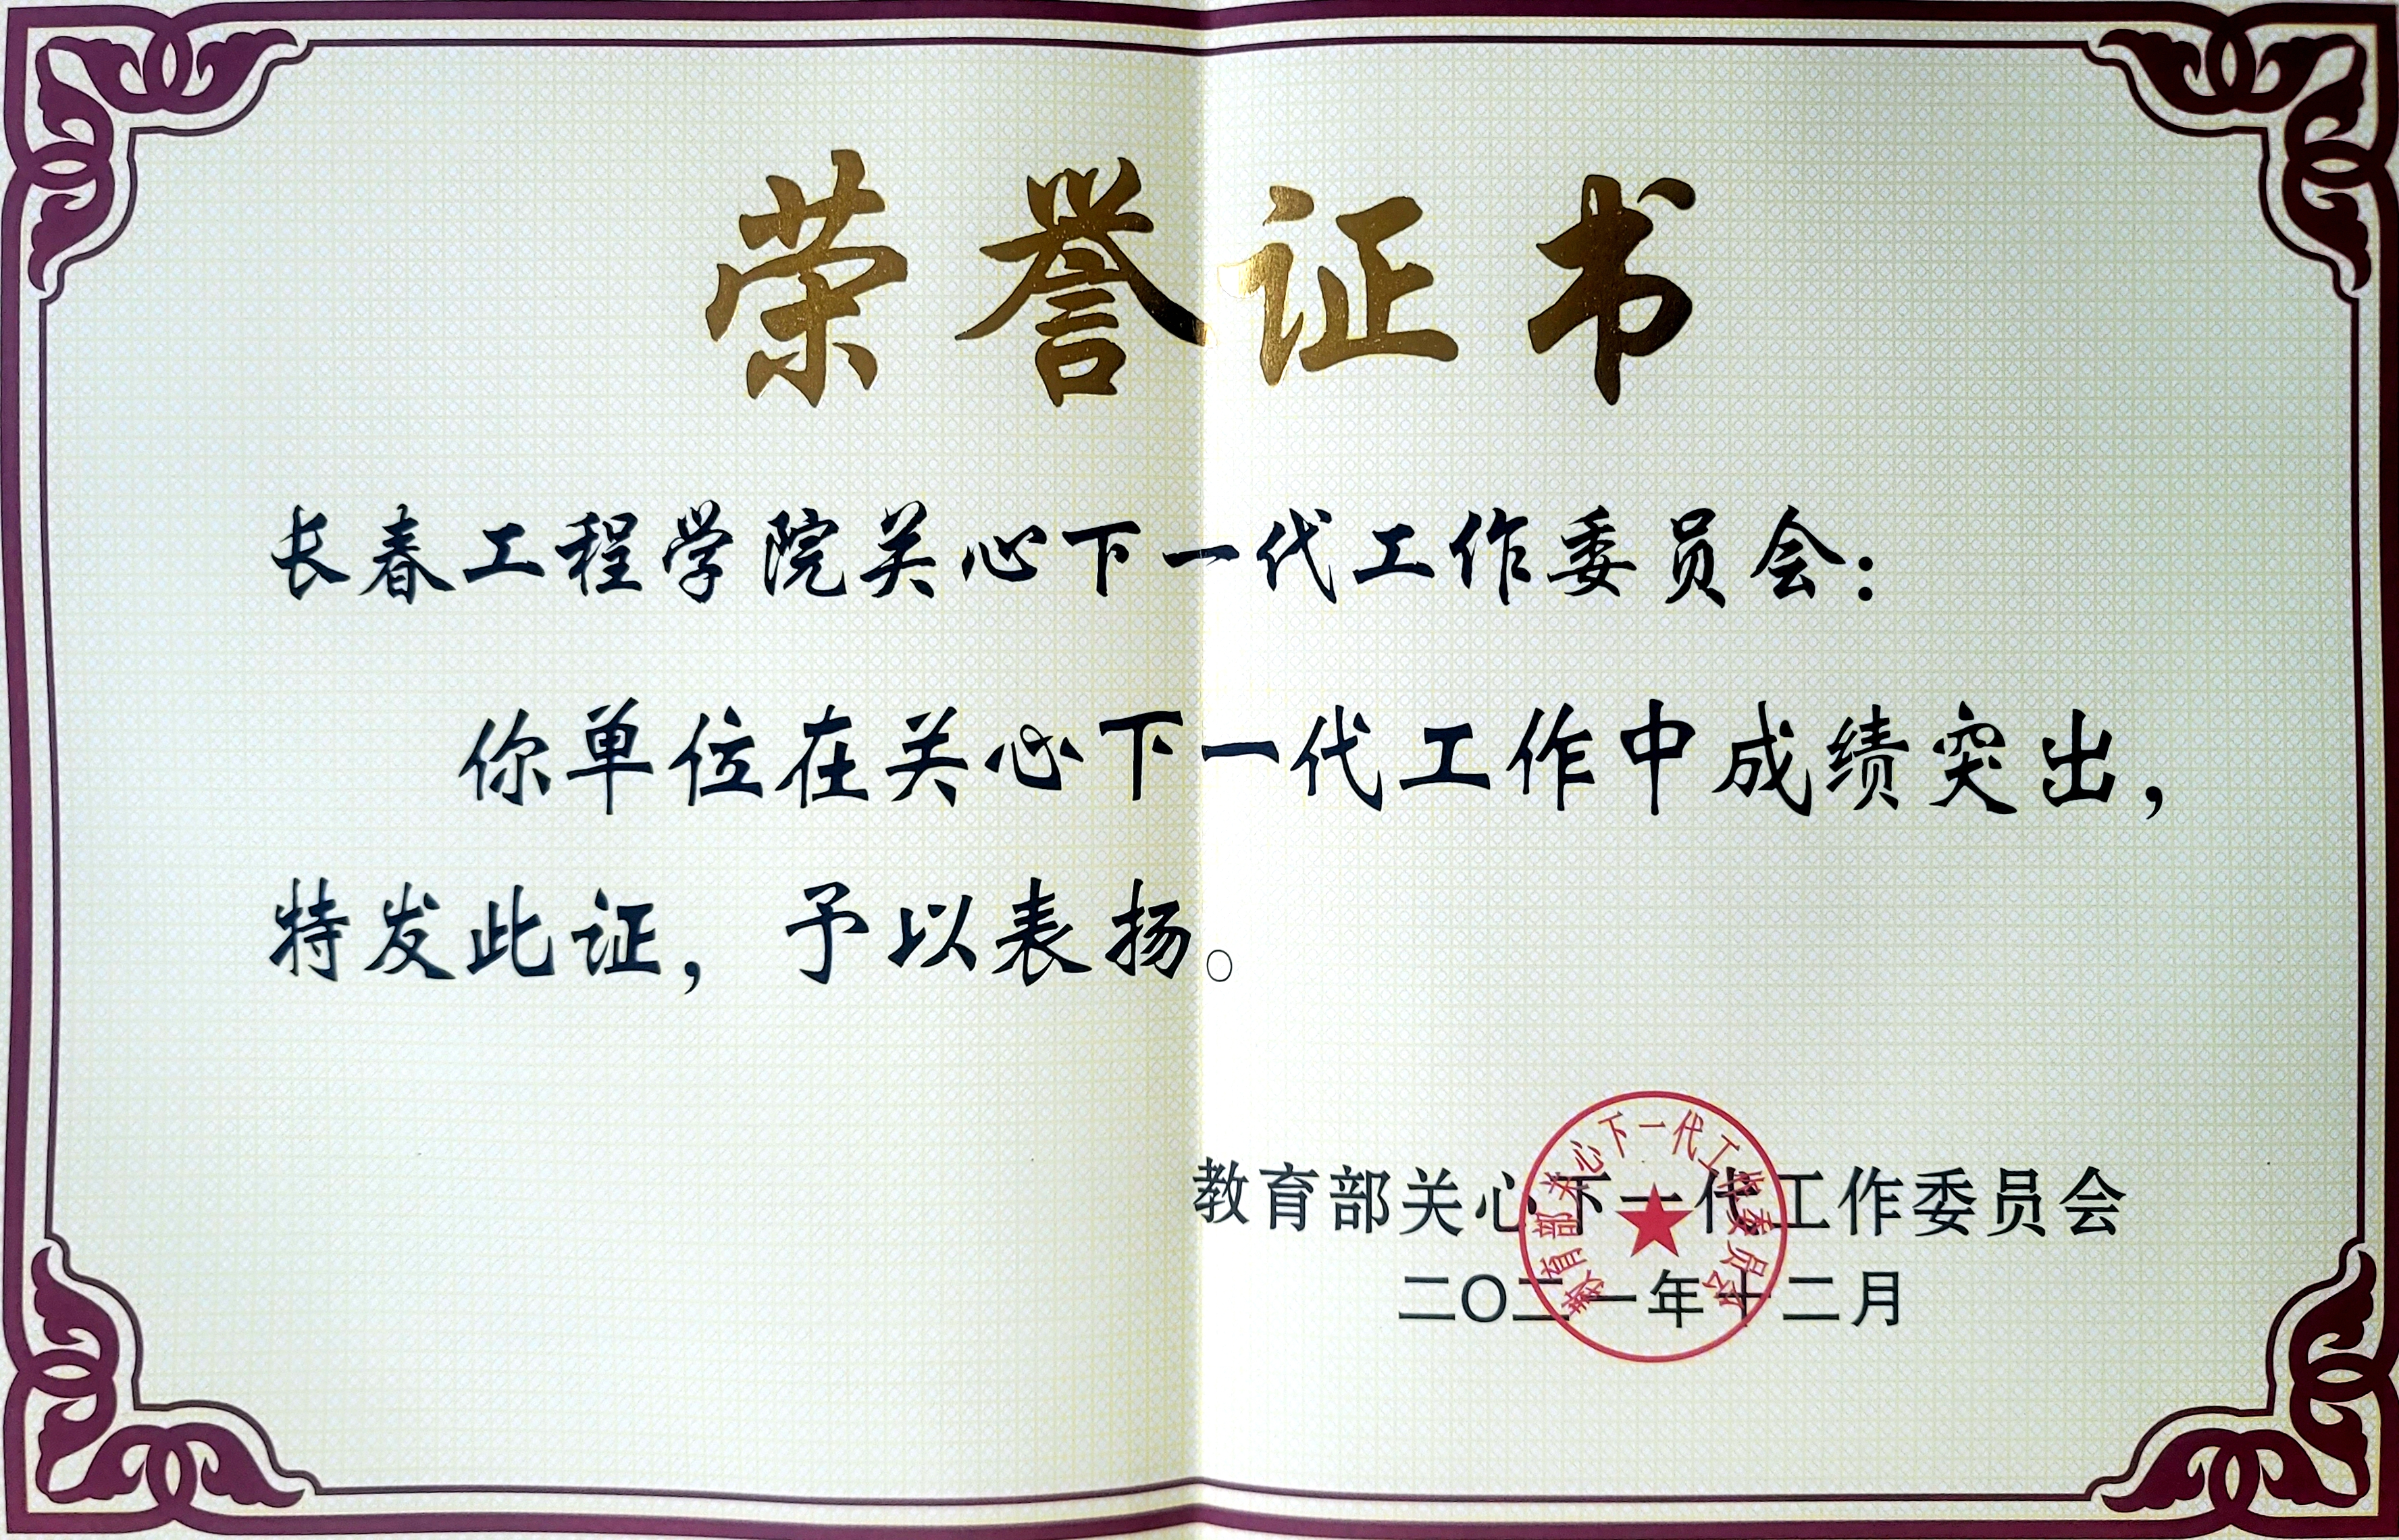 荣誉证书
长春工程学院关心下一代工作委员会：
你单位在关心下一代工作中成绩突出，
特发此证，予以表扬。
教育部关心下一代工作委员会
二〇二一年十二月
教育部关心下一代工作委员会